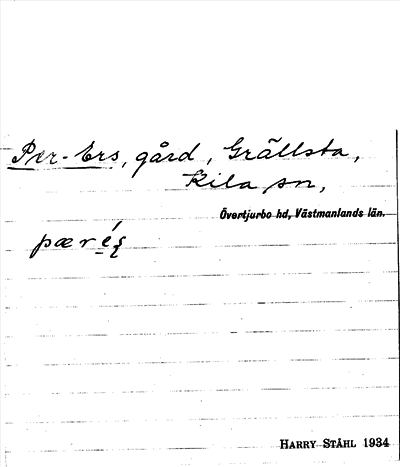 Per-Ers, gård, Grällsta,
Kila sn,
Övertjurbo hd, Västmanlands län.
HARRY STÅHL 1934